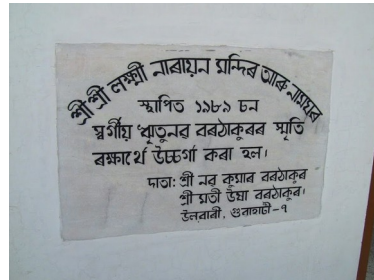 শ্ৰী শ্ৰী লক্ষ্মী নাৰায়ন মন্দিৰ আৰু নামঘৰ
স্থাপিত ১৯৮৯ চন
স্বৰ্গীয় ঋতুনৱ বৰঠাকুৰৰ স্মৃতি
ৰক্ষাৰ্থে উচ্চৰ্গা কৰা হল।
দাতা: শ্ৰী নৱ কুমাৰ বৰঠাকুৰ
শ্ৰী মতী উষা বৰঠাকুৰ।
উলুবাৰী, গুৱাহাটী - ৭